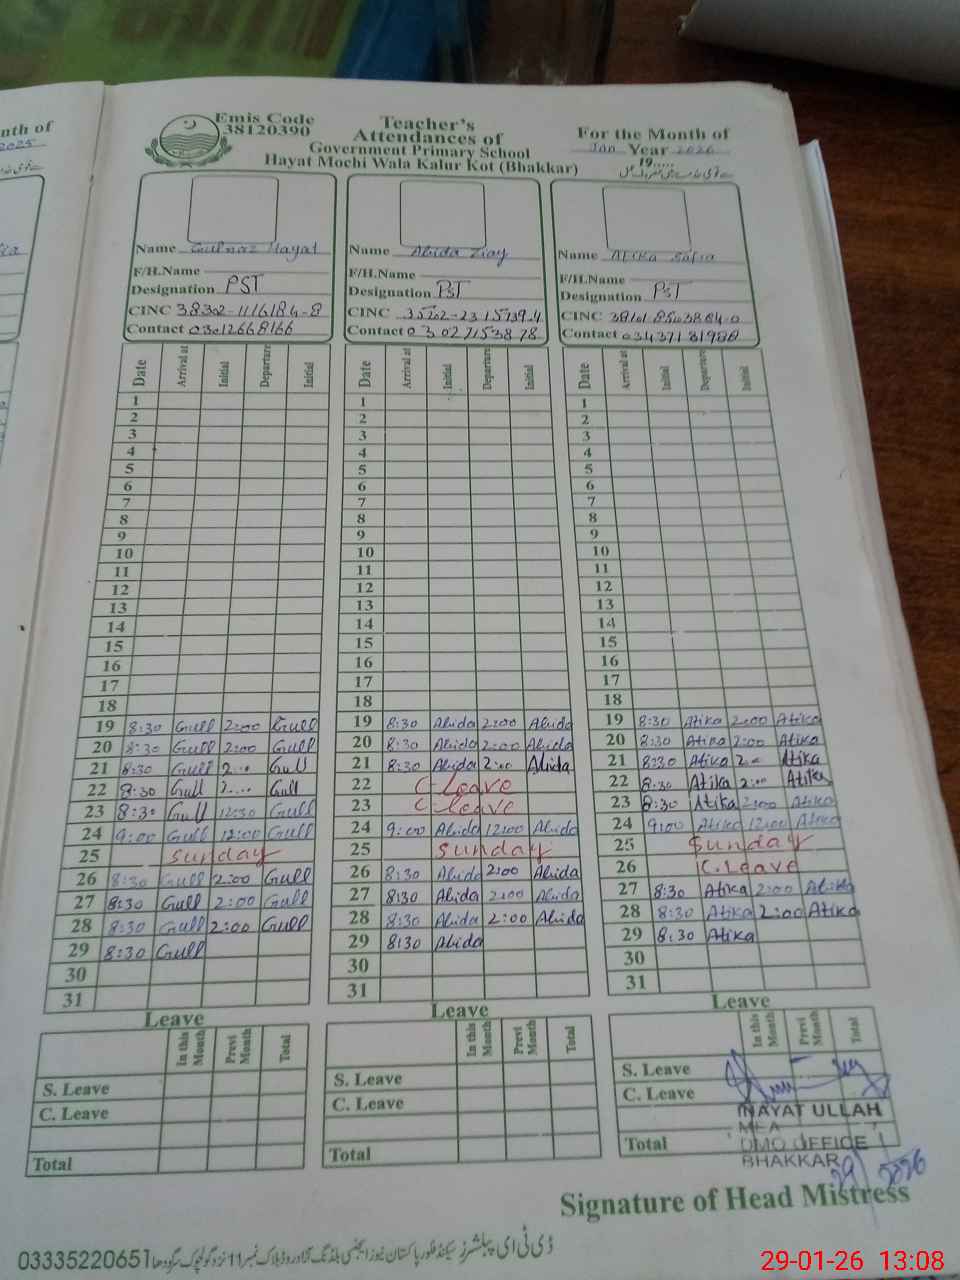 nth of
2025
Emis Code
38120390
Teacher's
Attendances of
Government Primary School
Hayat Mochi Wala Kalur Kot (Bhakkar)
For the Month of
Jan Year 2026
19.....
Name Gulnaz Hayat
F/H.Name
Designation PST
CINC 38302-1116184-8
Contact 03012668166
Name Abida Ziay
F/H.Name
Designation PST
CINC 35202-2315739-4
Contact 03027153878
Name Atika Safia
F/H.Name
Designation PST
CINC 38101-8503864-0
Contact 03437131988
Date Arrival at Initial Departure Initial Date Arrival at Initial Departure Initial Date Arrival at Initial Departure Initial
1 1 1
2 2 2
3 3 3
4 4 4
5 5 5
6 6 6
7 7 7
8 8 8
9 9 9
10 10 10
11 11 11
12 12 12
13 13 13
14 14 14
15 15 15
16 16 16
17 17 17
18 18 18
19 8:30 Gull 2:00 Gull 19 8:30 Abida 2:00 Abida 19 8:30 Atika 2:00 Atika
20 8:30 Gull 2:00 Gull 20 8:30 Abida 2:00 Abida 20 8:30 Atika 2:00 Atika
21 8:30 Gull 2... Gull 21 8:30 Abida 2:00 Abida 21 8:30 Atika 2:00 Atika
22 8:30 Gull 2.... Gull 22 C-leave 22 8:30 Atika 2:00 Atika
23 8:30 Gull 12:30 Gull 23 C-leave 23 8:30 Atika 2:00 Atika
24 9:00 Gull 12:00 Gull 24 9:00 Abida 12:00 Abida 24 9:00 Atika 12:00 Atika
25 Sunday 25 Sunday 25 Sunday
26 8:30 Gull 2:00 Gull 26 8:30 Abida 2:00 Abida 26 C.Leave
27 8:30 Gull 2:00 Gull 27 8:30 Abida 2:00 Abida 27 8:30 Atika 2:00 Atika
28 8:30 Gull 2:00 Gull 28 8:30 Abida 2:00 Abida 28 8:30 Atika 2:00 Atika
29 8:30 Gull 29 8:30 Abida 29 8:30 Atika
30 30 30
31 31 31
Leave Leave Leave
In this Month Previ Month Total In this Month Previ Month Total In this Month Previ Month Total
S. Leave S. Leave S. Leave
C. Leave C. Leave C. Leave
Total Total Total
INAYAT ULLAH
MEA
DMO OFFICE
BHAKKAR
29/1 2026
Signature of Head Mistress
03335220651
29-01-26 13:08